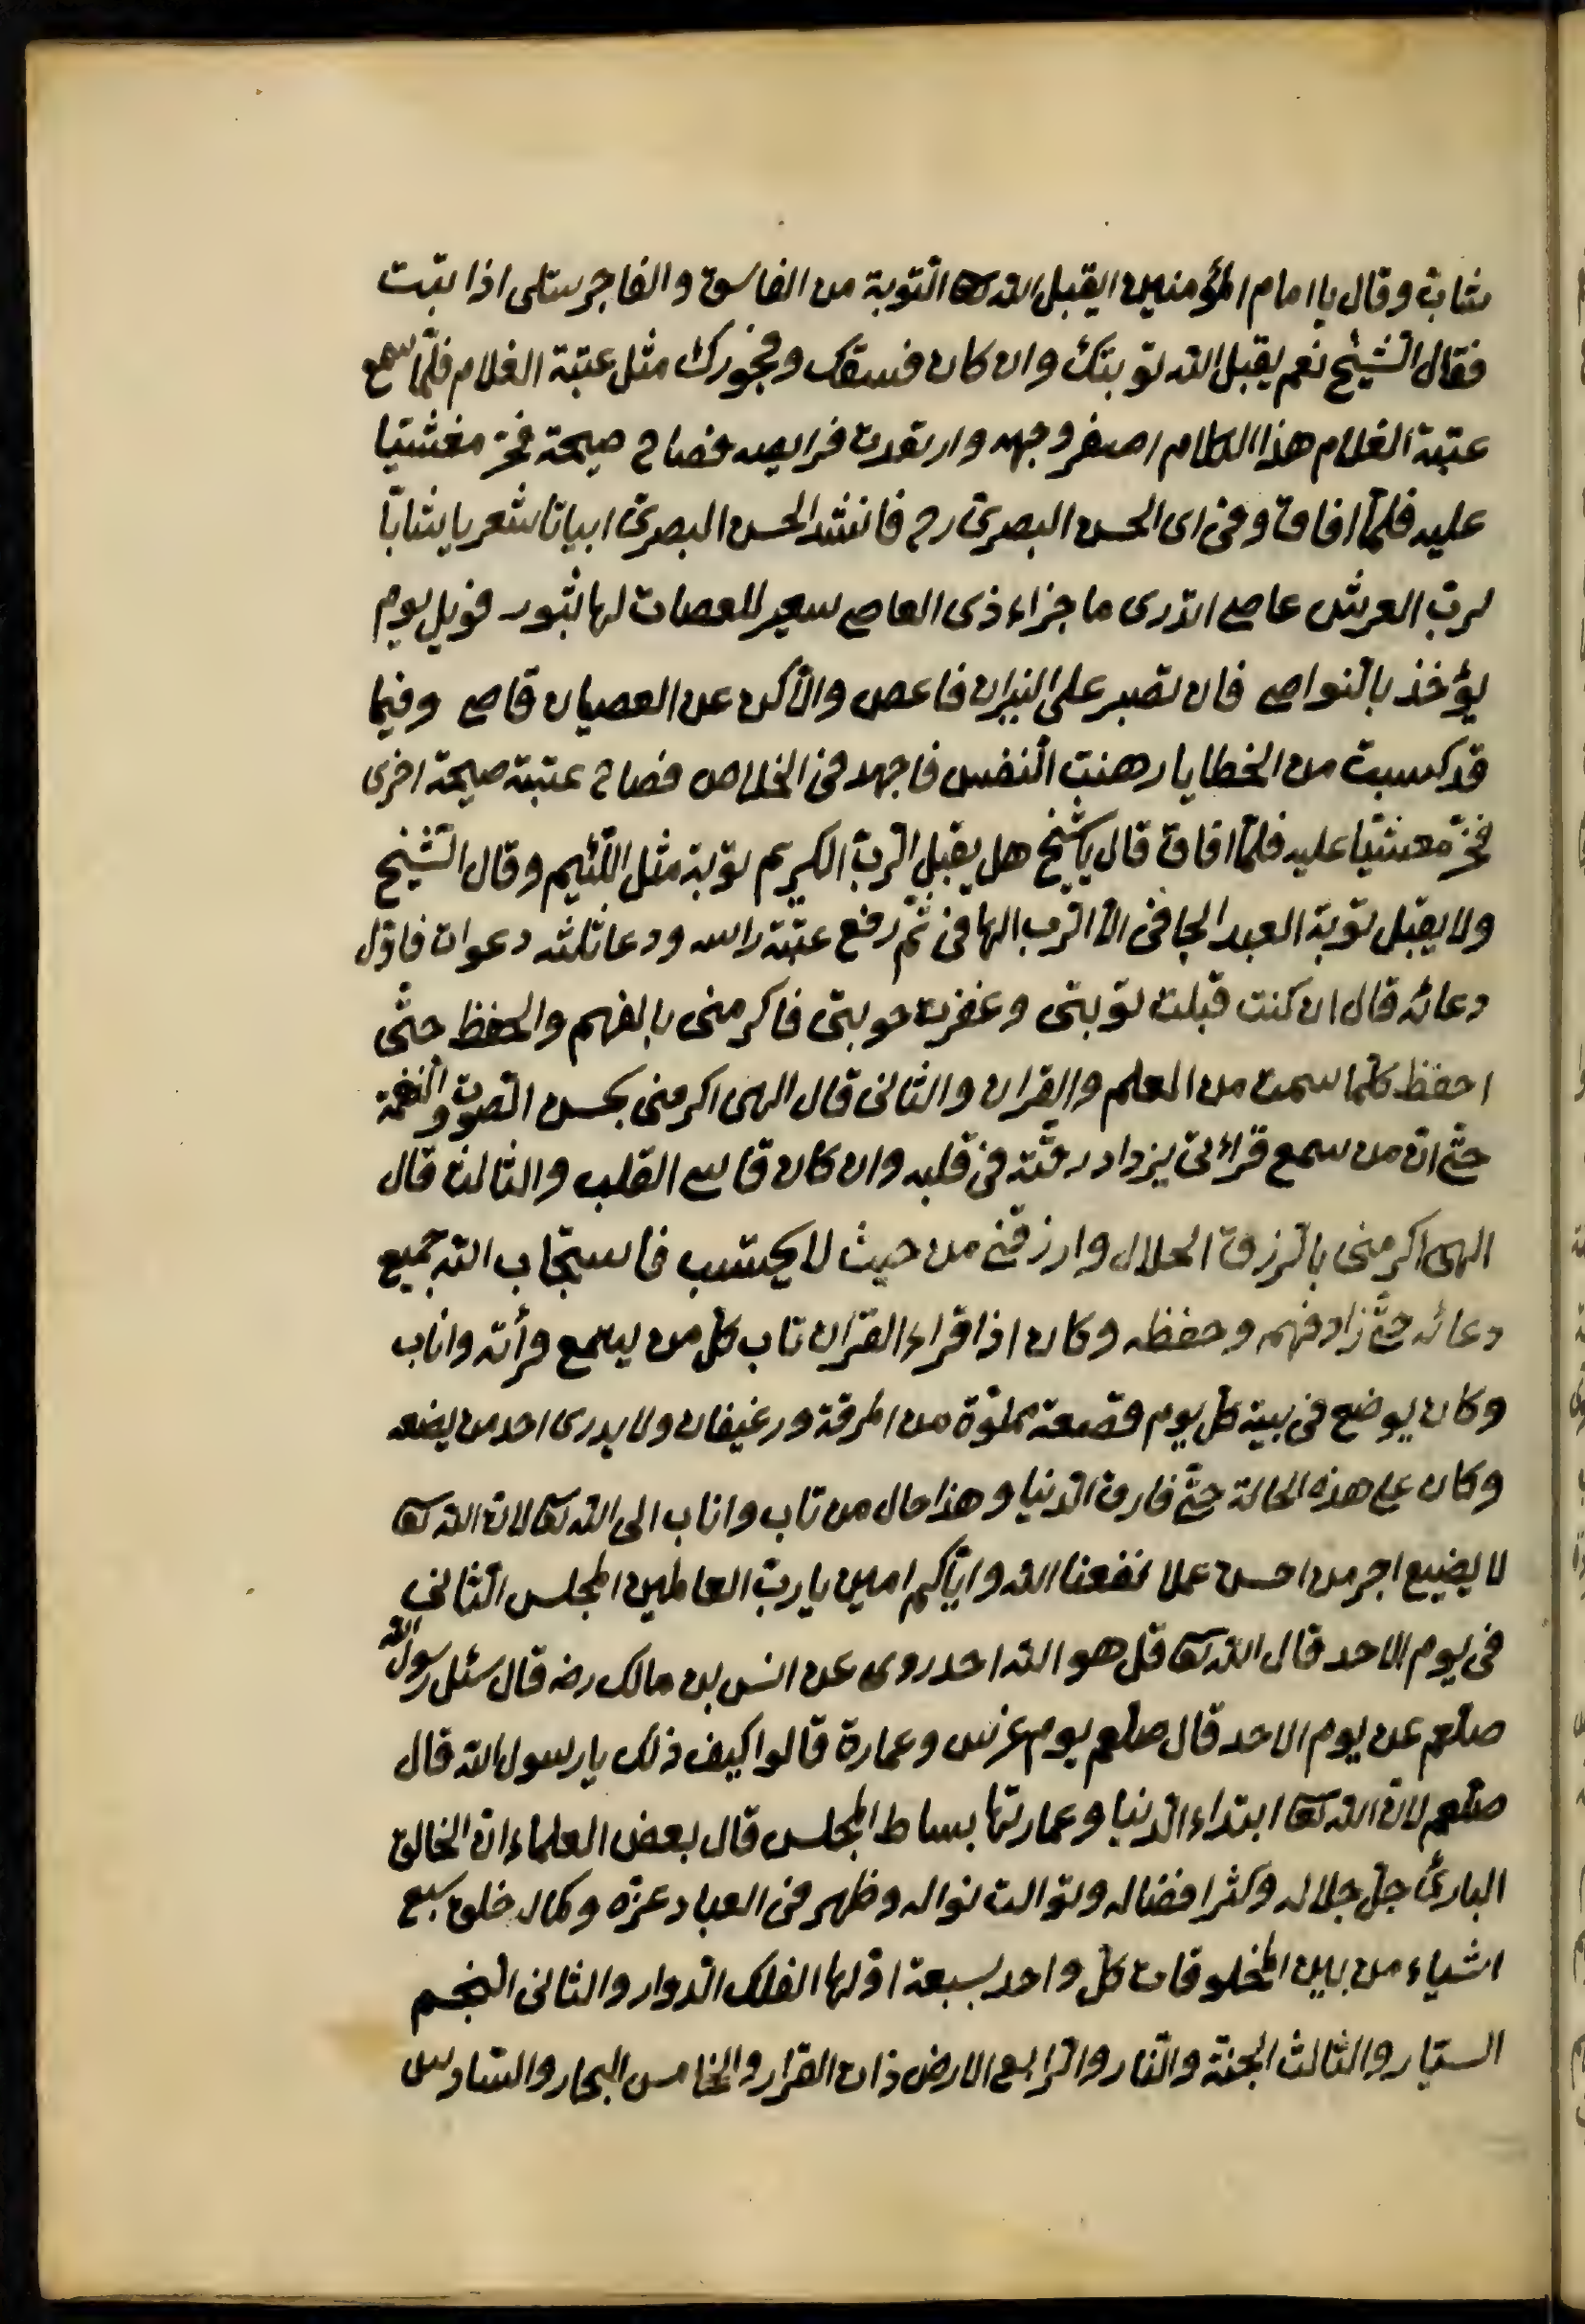 شاب وقال يا امام المؤمنين ايقبل الله تعا التوبة من الفاسق والفاجر مثلى اذا تبت
فقال الشيخ نعم يقبل الله توبتك وان كان فسقك وفجورك مثل عتبة الغلام فلمّا سمع
عتبة الغلام هذا الكلام اصفر وجهه وارتعدت فرايصه فصاح صيحة فخرّ مغشيّا
عليه فلمّا افاق دنى الى الحسن البصرىّ رح فانشد الحسن البصرىّ ابياتا شعر يا شابّا
لربّ العرش عاصى اتدرى ما جزاء ذى العاصى سعير للعصات لها ثبور فويل يوم
يؤخذ بالنّواصى فان تصبر على النيران فاعص والّا كن عن العصيان قاصى وفيما
قد كسبت من الخطايا رهنت النّفس فاجهد فى الخلاص فصاح عتبة صيحة اخرى
فخرّ مغشيّا عليه فلمّا افاق قال يا شيخ هل يقبل الرّبّ الكريم توبة مثل اللّئيم وقال الشّيخ
ولا يقبل توبة العبد الجافى الّا الرّب الهافى ثمّ رفع عتبة راسه ودعا ثلثه دعوات فاوّل
دعائه قال ان كنت قبلت توبتى وغفرت حوبتى فاكرمنى بالفهم والحفظ حتّى
احفظ كلّما سمعت من العلم والقران والثانى قال الهى اكرمنى بحسن الصّوت والنّغمة
حتّى انّ من سمع قرائتى يزداد رقّته فى قلبه وان كان قاسى القلب والثالث قال
الهى اكرمنى بالرّزق الحلال وارزقنى من حيث لا يحتسب فاستجاب الله جميع
دعائه حتّى زاد فهمه وحفظه وكان اذا قراء القران تاب كلّ من يسمع قرأته واناب
وكان يوضع فى بيته كلّ يوم قصعة مملوّة من المرقة ورغيفان ولا يدرى احد من يضعه
وكان على هذه الحالة حتّى فارق الدّنيا وهذا حال من تاب واناب الى الله تعا لانّ الله تعا
لا يضيع اجر من احسن عملا نفعنا الله وايّاكم امين يا ربّ العالمين المجلس الثّانى
فى يوم الاحد قال الله تعا قل هو الله احد روى عن انس بن مالك رضه قال سئل رسول الله
صلعم عن يوم الاحد قال صلعم يوم غرس وعمارة قالوا كيف ذلك يا رسول الله قال
صلعم لانّ الله تعا ابتداء الدّنيا وعمارتها بساط المجلس قال بعض العلماء انّ الخالق
البارئ جلّ جلاله وكثر افضاله وتوالت نواله وظهر فى العباد عزّه وكماله خلق سبع
اشياء من بين المخلوقات كلّ واحد بسبعة اوّلها الفلك الدّوار والثانى النجم
السّيّار والثالث الجنّة والنّار والرّابع الارض ذات القرار والخامس البحار والسّادس